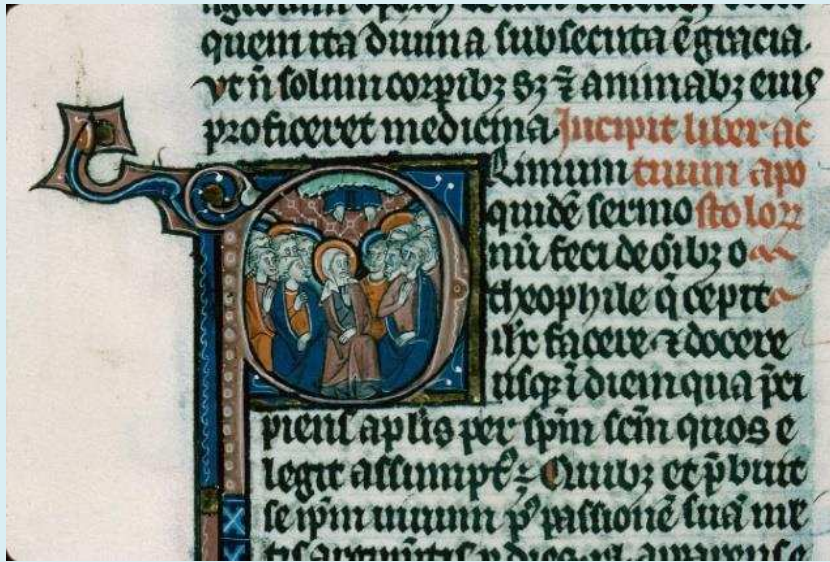 quem ita diuina subsecuta ē gracia.
vt n̄ solum corpꝑibꝫ sꝫ ⁊ animabꝫ eius
proficeret medicina. Incipit liber ac
Primum tuum apo
quidē sermo stoloꝝ
nū feci de oībꝫ o
theophile q̄ cepit
ihc̄ facere ⁊ docere
usqꝫ ī diem qua p̄ci
piens ap̄lis per sp̄m sc̄m quos e
legit assumpt᷒ ē. Quibꝫ et p̄buit
se ip̄m uiuum p᷒ passionē suā